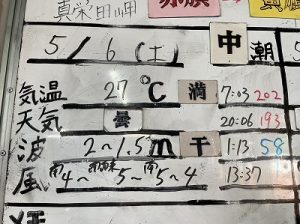 真栄田岬
5/6(土) 中潮
気温 27℃ 満 7:03 202
天気 曇 20:06 193
波 2~1.5m 干 1:13 58
風 南4~南南東5~南5~4 13:37